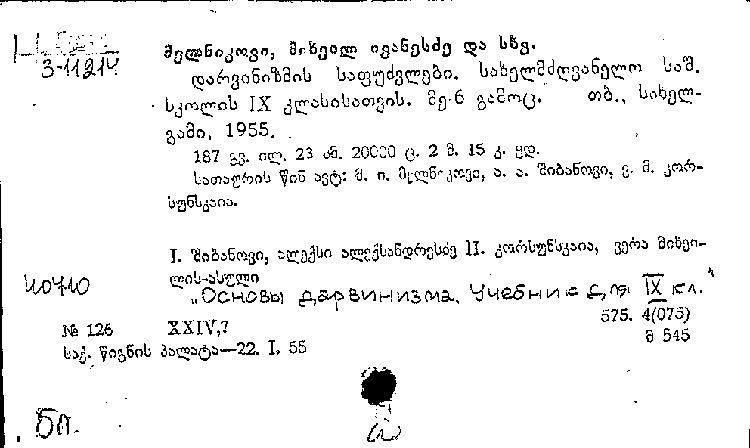 3-11214
მელნიკოვი, მიხეილ ივანესძე და სხვ.
დარვინიზმის საფუძვლები. სახელმძღვანელო საშ.
სკოლის IX კლასისათვის. მე-6 გამოც. თბ., სახელ-
გამი, 1955.
187 გვ. ილ. 23 სმ. 20000 ც. 2 მ. 15 კ. ყდ.
სათაურის წინ ავტ: მ. ი. მელნიკოვი, ა. ა. შიბანოვი, ვ. მ. კორ-
სუნსკაია.
I. შიბანოვი, ალექსი ალექსანდრესძე II. კორსუნსკაია, ვერა მიხეი-
ლის-ასული
40710
„Основы дарвинизма. Учебник для IX кл."
575. 4(075)
№ 126 XXIV,7
მ 545
საქ. წიგნის პალატა—22. I. 55